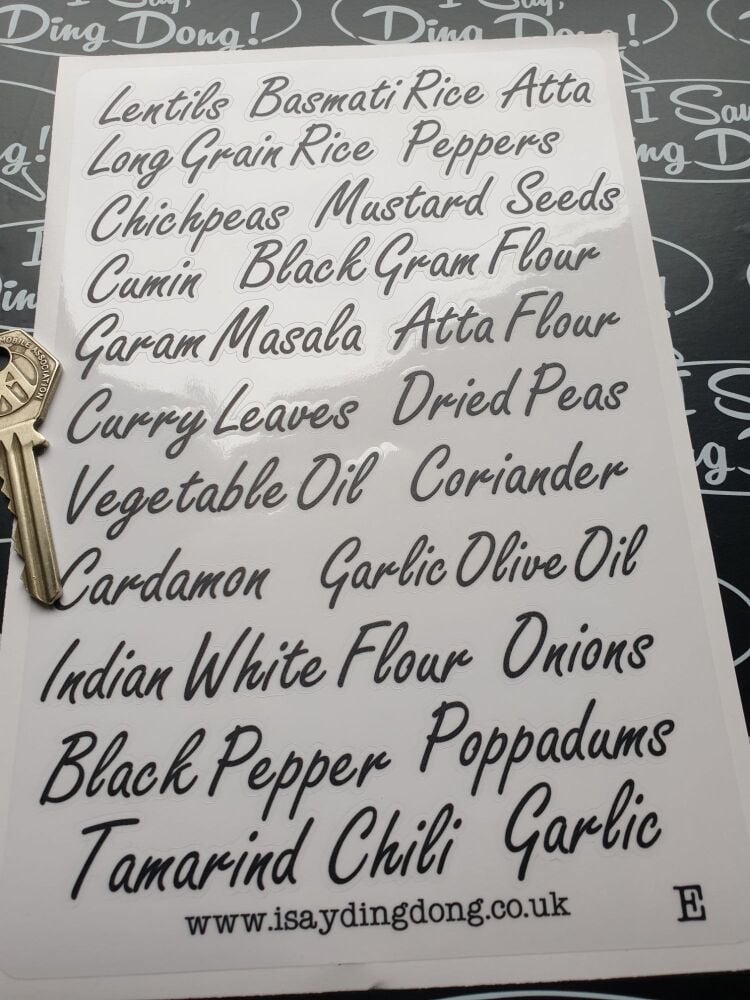 I Say,
Ding Dong!
Lentils Basmati Rice Atta
Long Grain Rice Peppers
Chichpeas Mustard Seeds
Cumin Black Gram Flour
Garam Masala Atta Flour
Curry Leaves Dried Peas
Vegetable Oil Coriander
Cardamon Garlic Olive Oil
Indian White Flour Onions
Black Pepper Poppadums
Tamarind Chili Garlic
www.isaydingdong.co.uk E
MOBILE ASSOCIATION